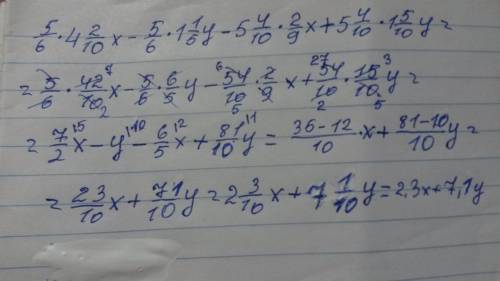 5/6 · 4 2/10 x - 5/6 · 1 1/5 y - 5 4/10 · 2/9 x + 5 4/10 · 1 5/10 y =
= 5/6 · 42/10 x - 5/6 · 6/5 y - 54/10 · 2/9 x + 54/10 · 15/10 y =
= 7/2 x - y - 6/5 x + 81/10 y = 36-12/10 · x + 81-10/10 y =
= 23/10 x + 71/10 y = 2 3/10 x + 7 1/10 y = 2,3x + 7,1y